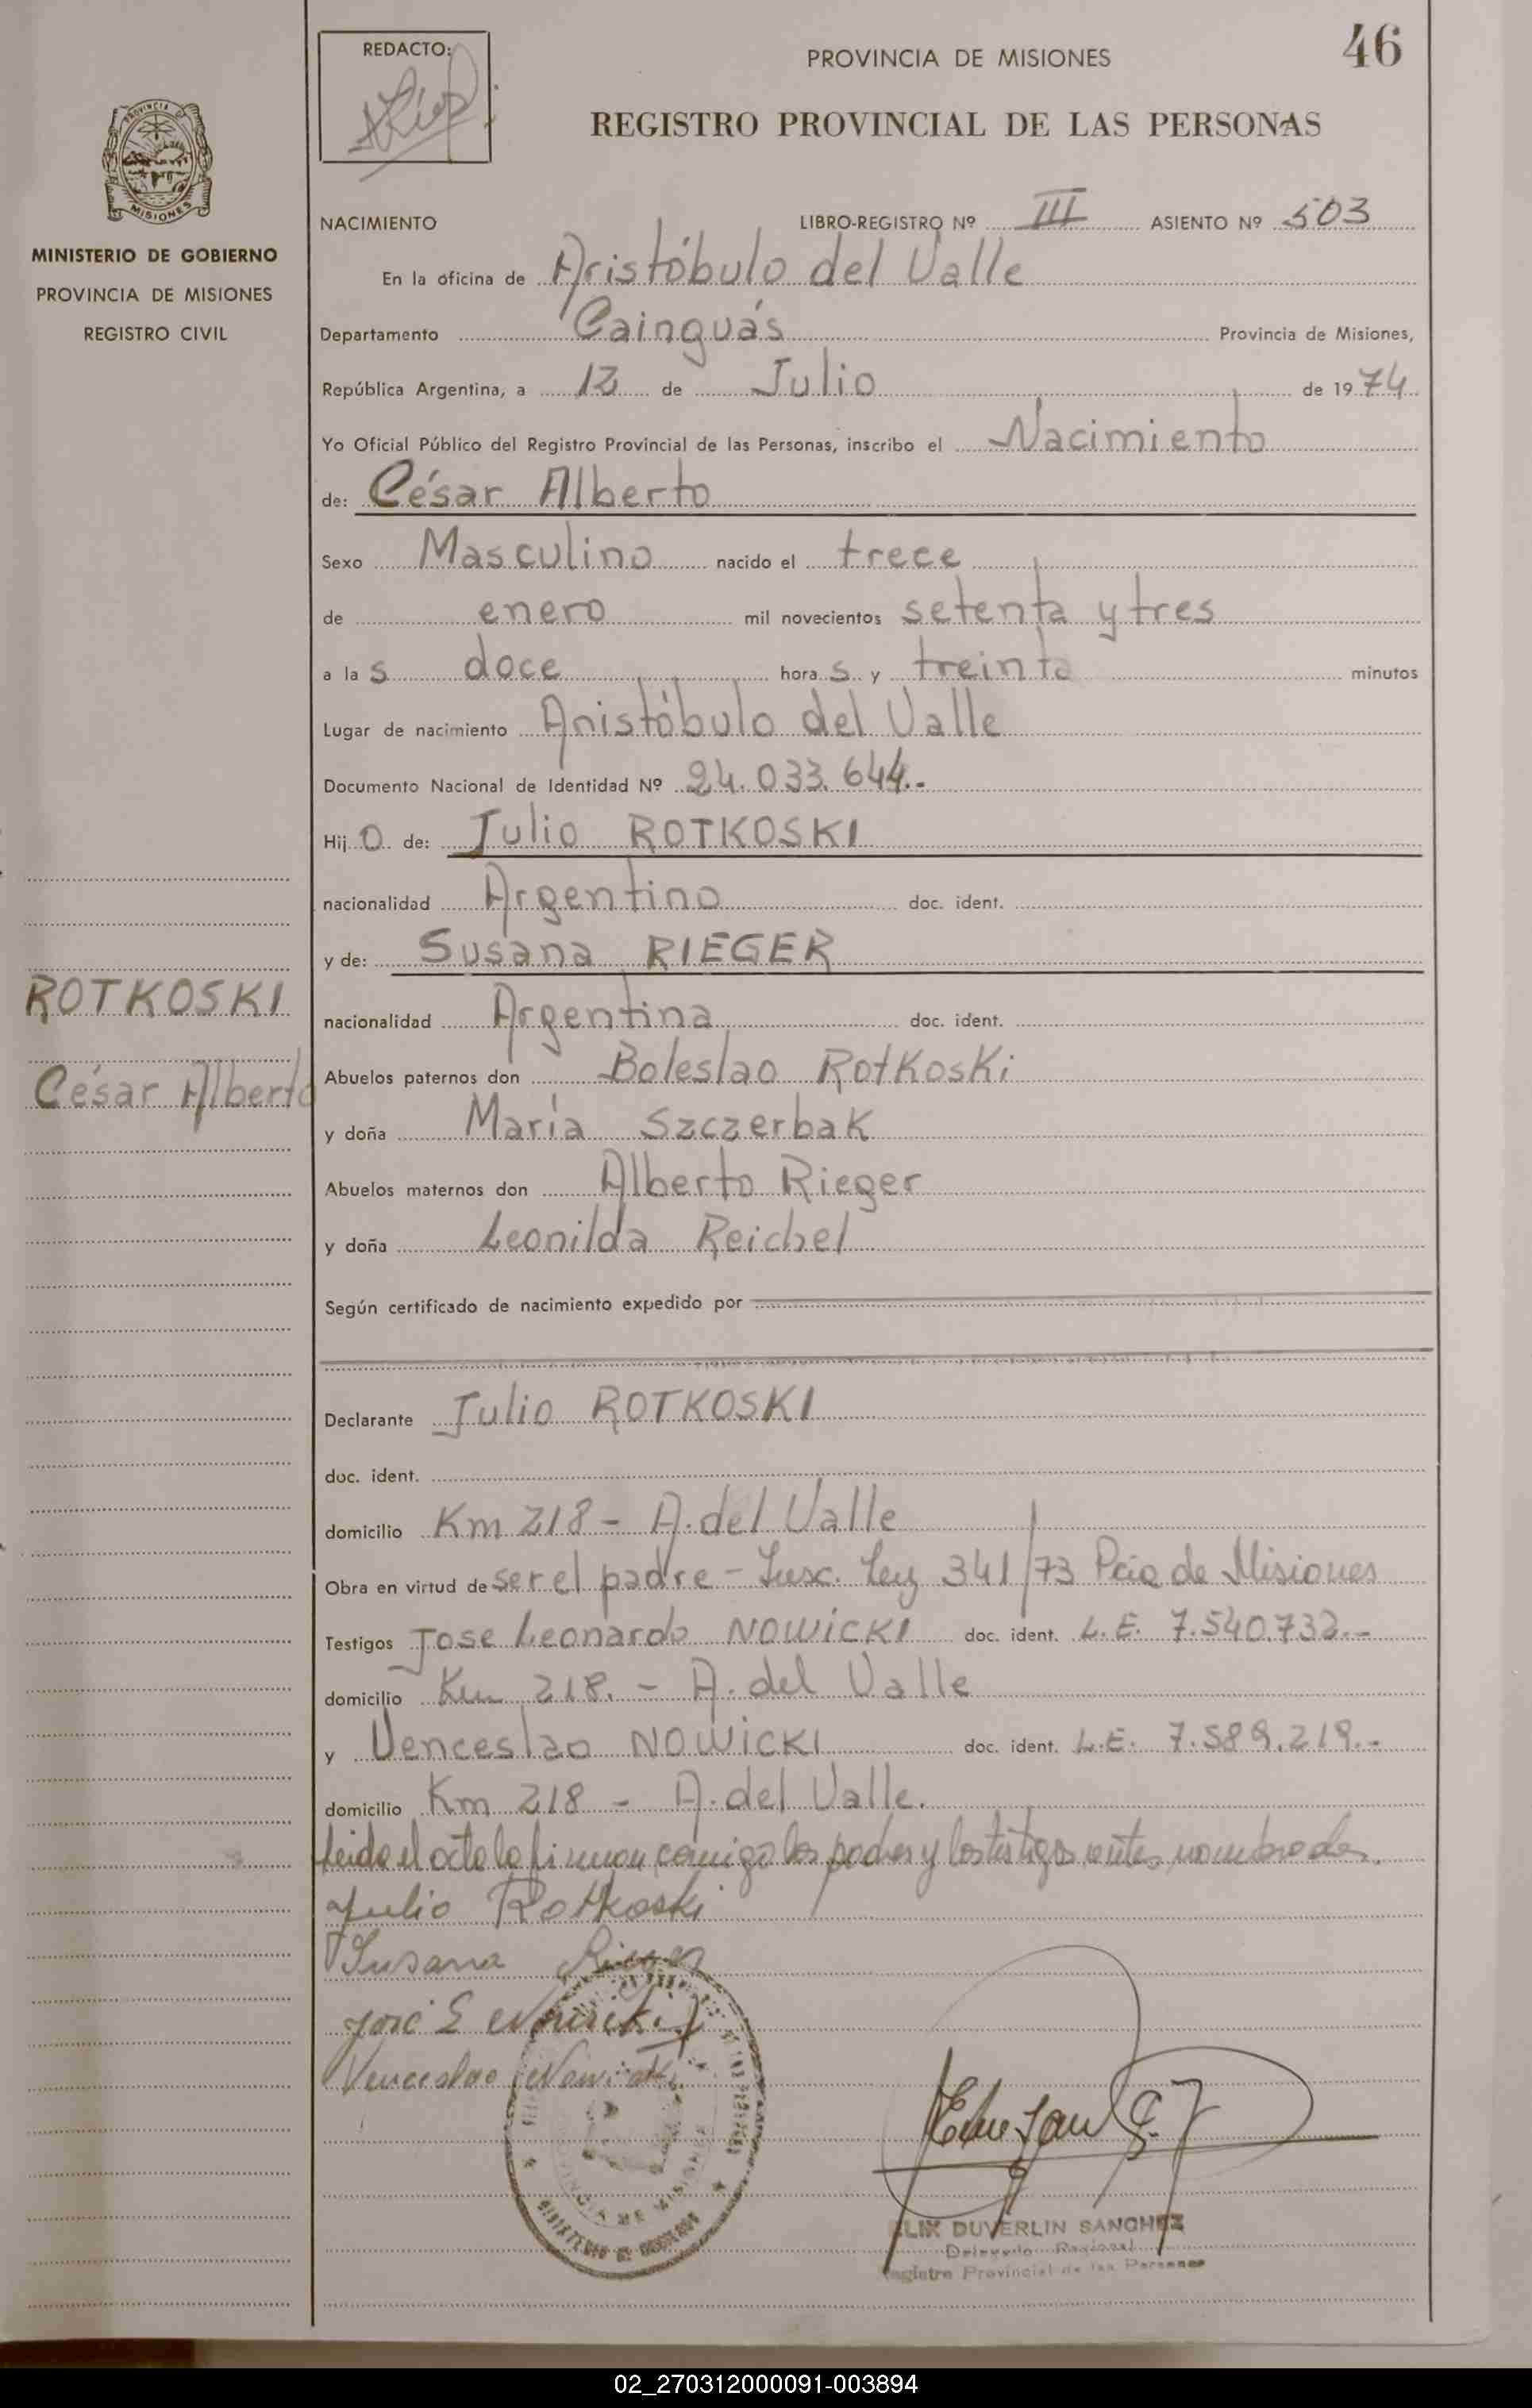 46
REDACTO:
PROVINCIA DE MISIONES
REGISTRO PROVINCIAL DE LAS PERSONAS
PROVINCIA DE
MISIONES
MINISTERIO DE GOBIERNO
PROVINCIA DE MISIONES
REGISTRO CIVIL
NACIMIENTO LIBRO-REGISTRO Nº III ASIENTO Nº 503
En la oficina de Aristóbulo del Valle
Departamento Cainguás Provincia de Misiones,
República Argentina, a 12 de Julio de 1974
Yo Oficial Público del Registro Provincial de las Personas, inscribo el Nacimiento
de: César Alberto
Sexo Masculino nacido el trece
de enero mil novecientos setenta y tres
a las doce horas y treinta minutos
Lugar de nacimiento Aristóbulo del Valle
Documento Nacional de Identidad Nº 24.033.644.-
Hijo de: Julio ROTKOSKI
nacionalidad Argentino doc. ident.
y de: Susana RIEGER
ROTKOSKI
nacionalidad Argentina doc. ident.
César Alberto
Abuelos paternos don Boleslao Rotkoski
y doña María Szczerbak
Abuelos maternos don Alberto Rieger
y doña Leonilda Reichel
Según certificado de nacimiento expedido por
Declarante Julio ROTKOSKI
doc. ident.
domicilio Km 218 - A. del Valle
Obra en virtud de ser el padre - Insc. Ley 341/73 Pcia de Misiones
Testigos Jose Leonardo NOWICKI doc. ident. L.E. 7.540.732.-
domicilio Km 218. - A. del Valle
y Venceslao NOWICKI doc. ident. L.E. 7.589.219.-
domicilio Km 218 - A. del Valle.
Leida el acta la firman conmigo los padres y los testigos antes nombrados.
Julio Rotkoski
Susana Rieger
José L Nowicki
Venceslao Nowicki
MINISTERIO DE GOBIERNO
ELIX DUVERLIN SANCHEZ
Delegado Regional
Registro Provincial de las Personas
02_270312000091-003894